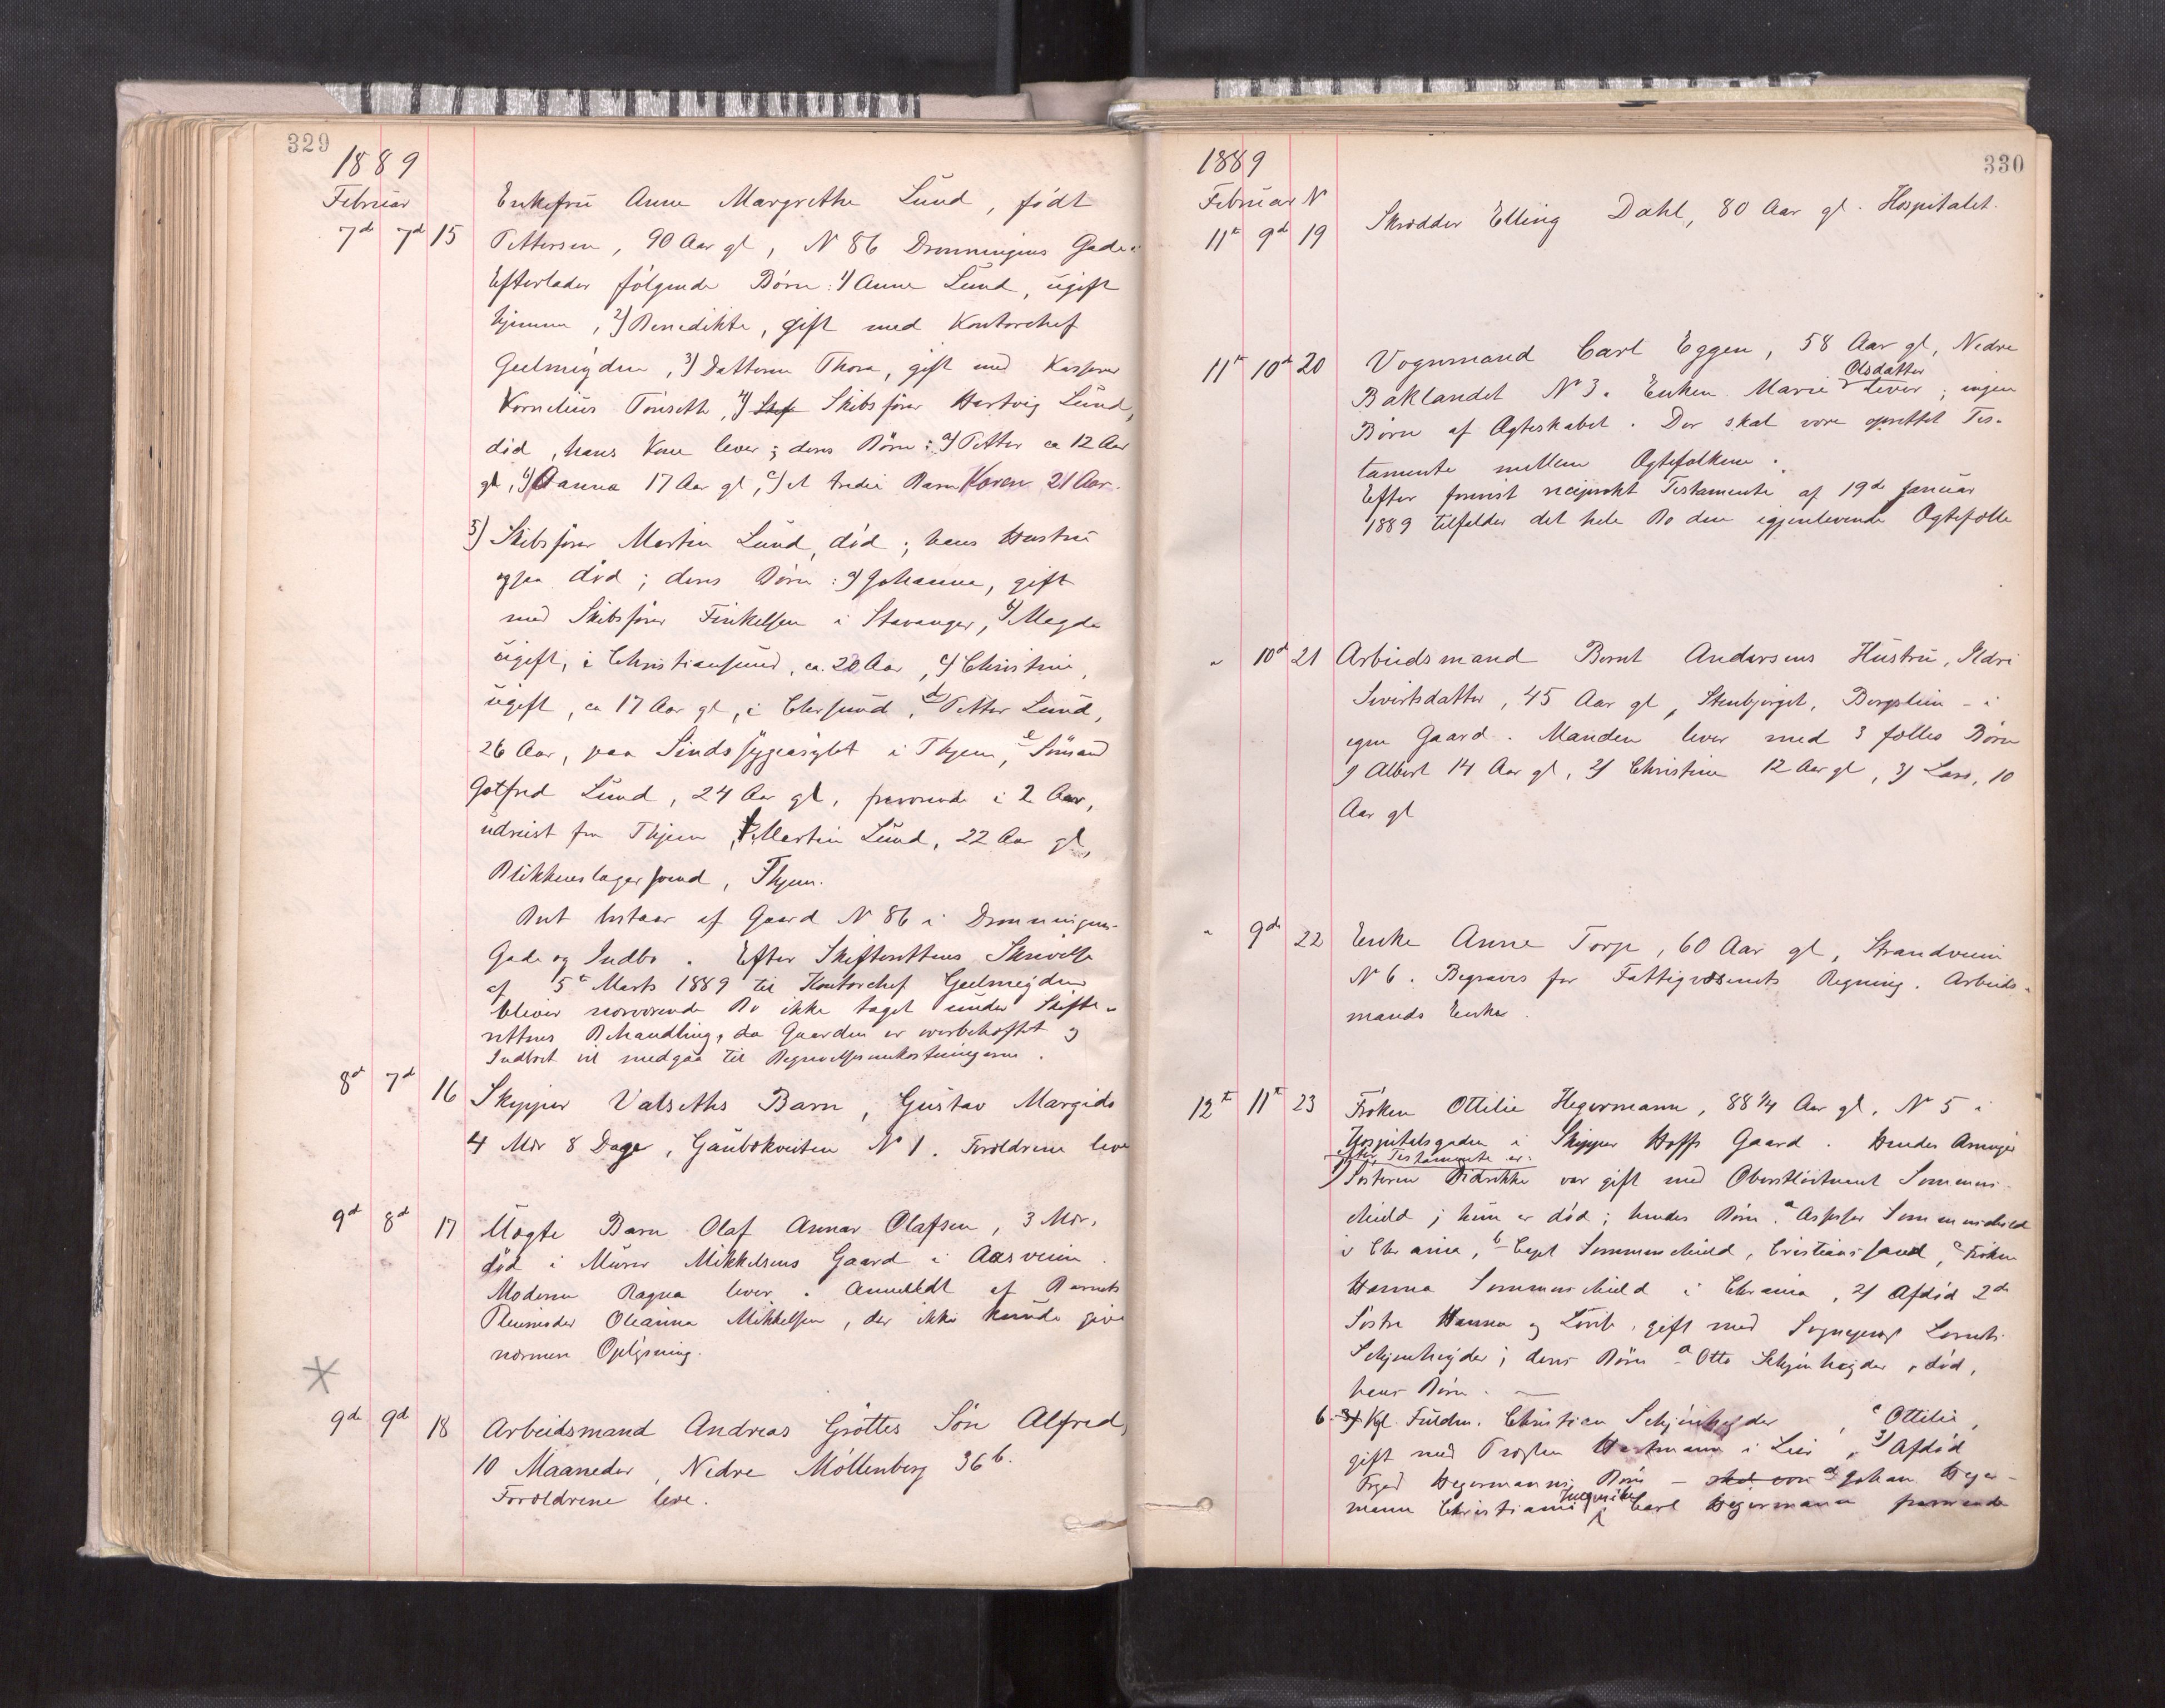 329
1889
Februar
7de 7de 15 Enkefru Anne Margrethe Lund, födt
Pettersen, 90 Aar gl, N 86 Dronningens Gade.
Efterlader følgende Børn: 1) Anne Lund, ugift
hjemme, 2) Benedikte, gift med Kontorchef
Geelmeÿden, 3) Datteren Thora, gift med Kasserer
Kornelius Tønseth, 4) Skibsfører Hartvig Lund,
död, hans Kone lever; deres Børn: a) Petter ca 12 Aar
gl, b) Hanna 17 Aar gl, c) et tredie Barn Karen 21 Aar.
5) Skibsfører Martin Lund, död; hans Hustru
ogsaa död; deres Børn: a) Johanne, gift
med Skibsfører Finkelsen i Stavanger, b) Magda
ugift, i Christiansund, ca. 20 Aar, c) Christine,
ugift, ca 17 Aar gl, i Chrsund, d) Petter Lund,
26 Aar, paa Sindssÿgeasÿlet i Thjem, e Sömand
Gotfred Lund, 24 Aar gl, fraværende i 2 Aar,
udreist fra Thjem, f Martin Lund, 22 Aar gl,
Blikkenslagersvend, Thjem.
Boet bestaar af Gaard N 86 i Dronningens
Gade og Indbo. Efter Skifterettens Skrivelse
af 5te Marts 1889 til Kontorchef Geelmeÿden
bliver nærværende Bo ikke taget under Skifte-
rettens Behandling, da Gaarden er overbehæftet og
Indboet vil medgaa til Begravelsesomkostningerne.
8de 7de 16 Skipper Valseths Barn, Gustav Margido
4 Mdr 8 Dage, Gaubækveiten N 1. Forældrene leve
9de 8de 17 Uægte Barn Olaf Annar Olafsen, 3 Mdr,
død i Murer Mikkelsens Gaard i Aasveien.
Moderen Ragna lever. Anmeldt af Barnets
Pleiemoder Oleanna Mikkelsen, der ikke kunde give
nærmere Oplÿsning.
9de 9de 18 Arbeidsmand Andreas Gröttes Sön Alfred,
10 Maaneder, Nedre Möllenberg 36 b.
Forældrene leve.
330
1889
Februar N
11te 9de 19 Skrædder Elling Dahl, 80 Aar gl. Hospitalet.
11te 10de 20 Vognmand Carl Eggen, 58 Aar gl, Nedre
Baklandet No 3. Enken Marie Olsdatter lever; ingen
Børn af Ægteskabet. Der skal være oprettet Tes-
tamente mellem Ægtefolkene.
Efter forevist reciprokt Testamente af 19de Januar
1889 tilfalder det hele Bo den igjenlevende Ægtefælle
" 10de 21 Arbeidsmand Bernt Andersens Hustru, Ildri
Sivertsdatter, 45 Aar gl, Stenbjerget, Bergslien - i
egen Gaard. Manden lever med 3 fælles Børn
1) Albert 14 Aar gl, 2) Christine 12 Aar gl, 3) Lars, 10
Aar gl
" 9de 22 Enke Anne Torp, 60 Aar gl, Strandveien
No 6. Begraves for Fattigvæsenets Regning. Arbeids-
mands Enke.
12te 11te 23 Frøken Ottilie Hegermann, 88 1/4 Aar gl, No 5 i
Hospitalsgaden i Skipper Hoffs Gaard. Hendes Arvinger
efter Testamente er:
1) Søsteren Didrikke var gift med Oberstløitnant Sommer-
schield; hun er død; hendes Børn: a Assessor Sommerschield
i Chrania, b Capt Sommerschield, Cristianssand, c Frøken
Hanna Sommerschield i Chrania, 2) Afdød 2de
Søstre Hanna og Lovise, gift med Sogneprest Lorents
Schjenheÿder; deres Børn a Otto Schjenheÿder, död,
hans Børn.
b Kgl. Fuldm. Christian Schjenheÿder, c Ottilie,
gift med Provsten Hartmann i Lier, 3) Afdød
Hegermanns Børn - a Johan Heger-
mann Christiania, Carl Hegermann fraværende